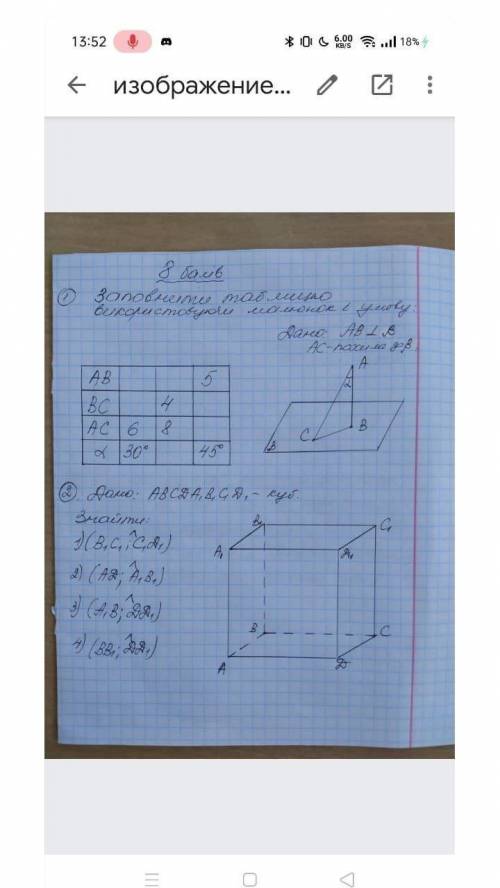 13:52
6.00
KB/S
18%
изображение...
8 балів
① Заповнити таблицю
використовуючи малюнок і умову:
Дано: AB⊥β
AC-похила до β.
AB 5
BC 4
AC 6 8
α 30° 45°
A
α
B
C
β
② Дано: ABCDA₁B₁C₁D₁ - куб.
Знайти:
1) (B₁C₁; ^C₁D₁)
2) (AD; ^A₁B₁)
3) (A₁B; ^DD₁)
4) (BB₁; ^DD₁)
B₁
C₁
A₁
D₁
B
C
A
D